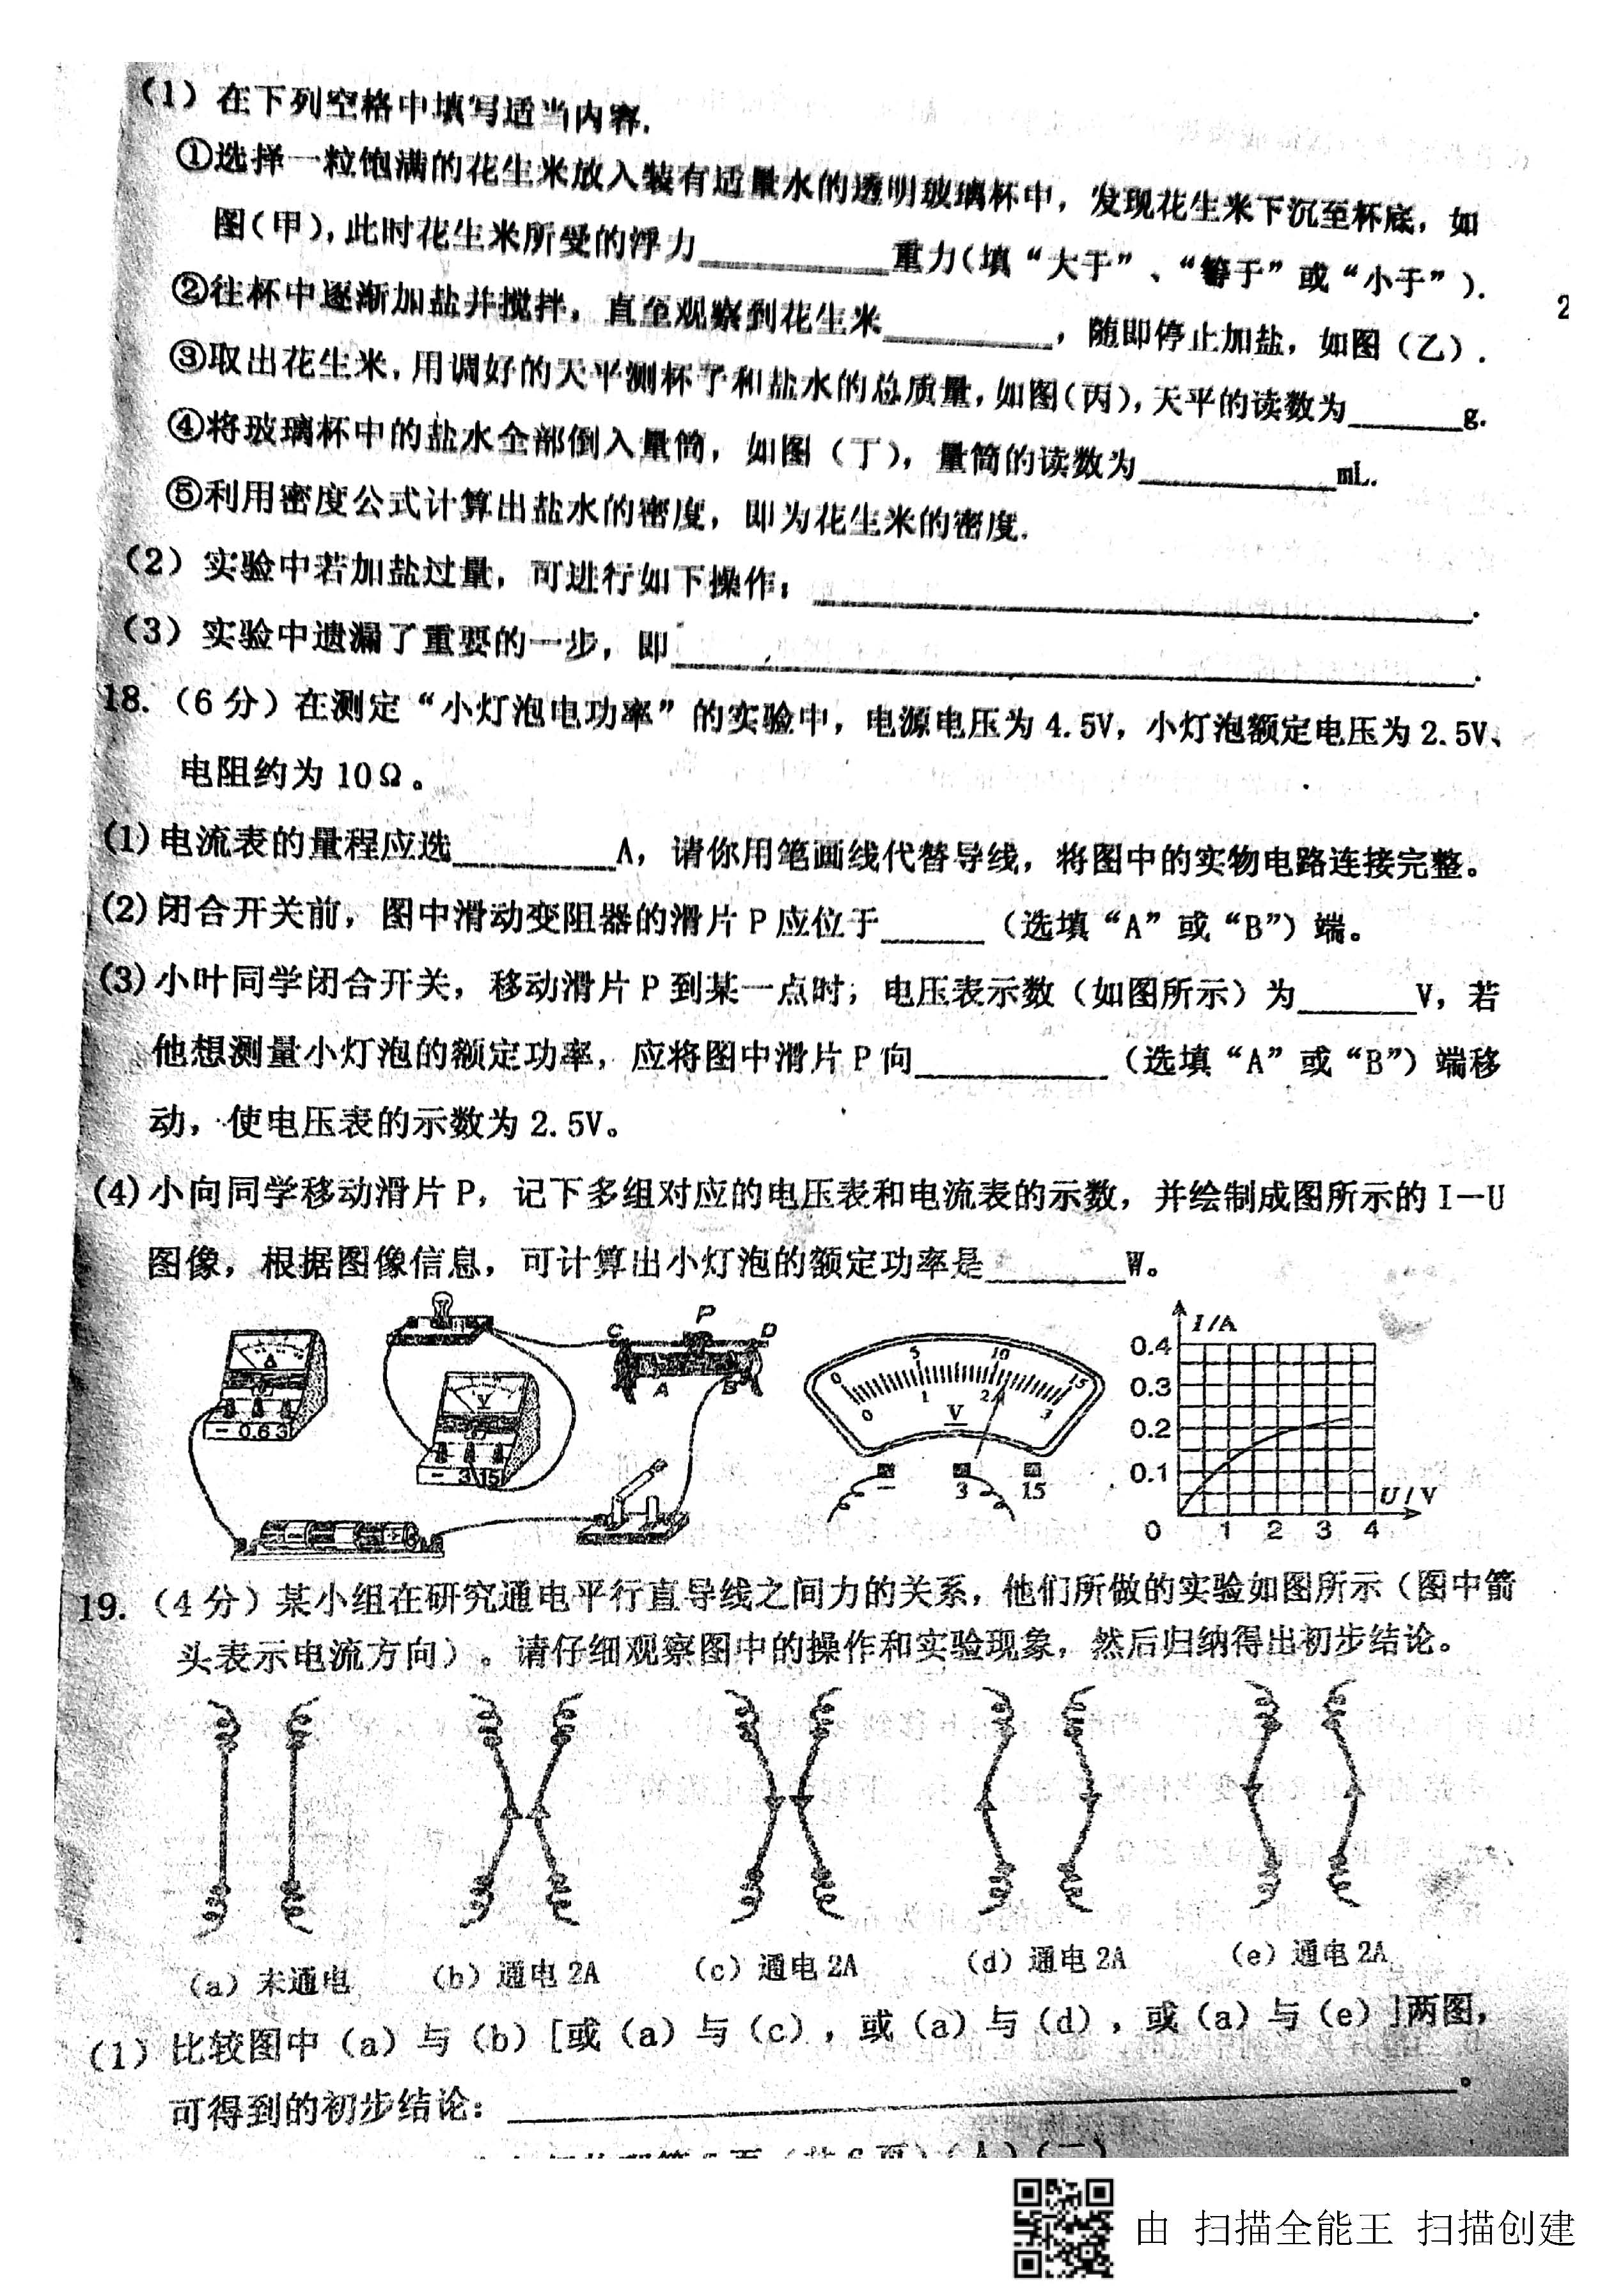 (1) 在下列空格中填写适当内容.
①选择一粒饱满的花生米放入装有适量水的透明玻璃杯中，发现花生米下沉至杯底，如
图(甲),此时花生米所受的浮力________重力(填“大于”、“等于”或“小于”).
2
②往杯中逐渐加盐并搅拌，直至观察到花生米________，随即停止加盐，如图（乙）.
③取出花生米,用调好的天平测杯子和盐水的总质量,如图(丙),天平的读数为____g.
④将玻璃杯中的盐水全部倒入量筒，如图（丁），量筒的读数为________mL.
⑤利用密度公式计算出盐水的密度，即为花生米的密度.
(2) 实验中若加盐过量，可进行如下操作：________________.
(3) 实验中遗漏了重要的一步，即________________.
18.（6分）在测定“小灯泡电功率”的实验中，电源电压为4.5V，小灯泡额定电压为2.5V、
电阻约为10Ω。
(1)电流表的量程应选________A，请你用笔画线代替导线，将图中的实物电路连接完整。
(2)闭合开关前，图中滑动变阻器的滑片P应位于____（选填“A”或“B”）端。
(3)小叶同学闭合开关，移动滑片P到某一点时，电压表示数（如图所示）为____V，若
他想测量小灯泡的额定功率，应将图中滑片P向________（选填“A”或“B”）端移
动，使电压表的示数为2.5V。
(4)小向同学移动滑片P，记下多组对应的电压表和电流表的示数，并绘制成图所示的I－U
图像，根据图像信息，可计算出小灯泡的额定功率是______W。
A
－ 0.6 3
V
－ 3 15
C P D
A B
0 5 10 15
0 1 2 3
V
－ 3 15
I/A
0.4
0.3
0.2
0.1
U/V
0 1 2 3 4
19.（4分）某小组在研究通电平行直导线之间力的关系，他们所做的实验如图所示（图中箭
头表示电流方向）。请仔细观察图中的操作和实验现象，然后归纳得出初步结论。
(a) 未通电 (b) 通电2A (c) 通电2A (d) 通电2A (e) 通电2A
(1) 比较图中（a）与（b）[或（a）与（c），或（a）与（d），或（a）与（e）]两图，
可得到的初步结论：________________。
由 扫描全能王 扫描创建